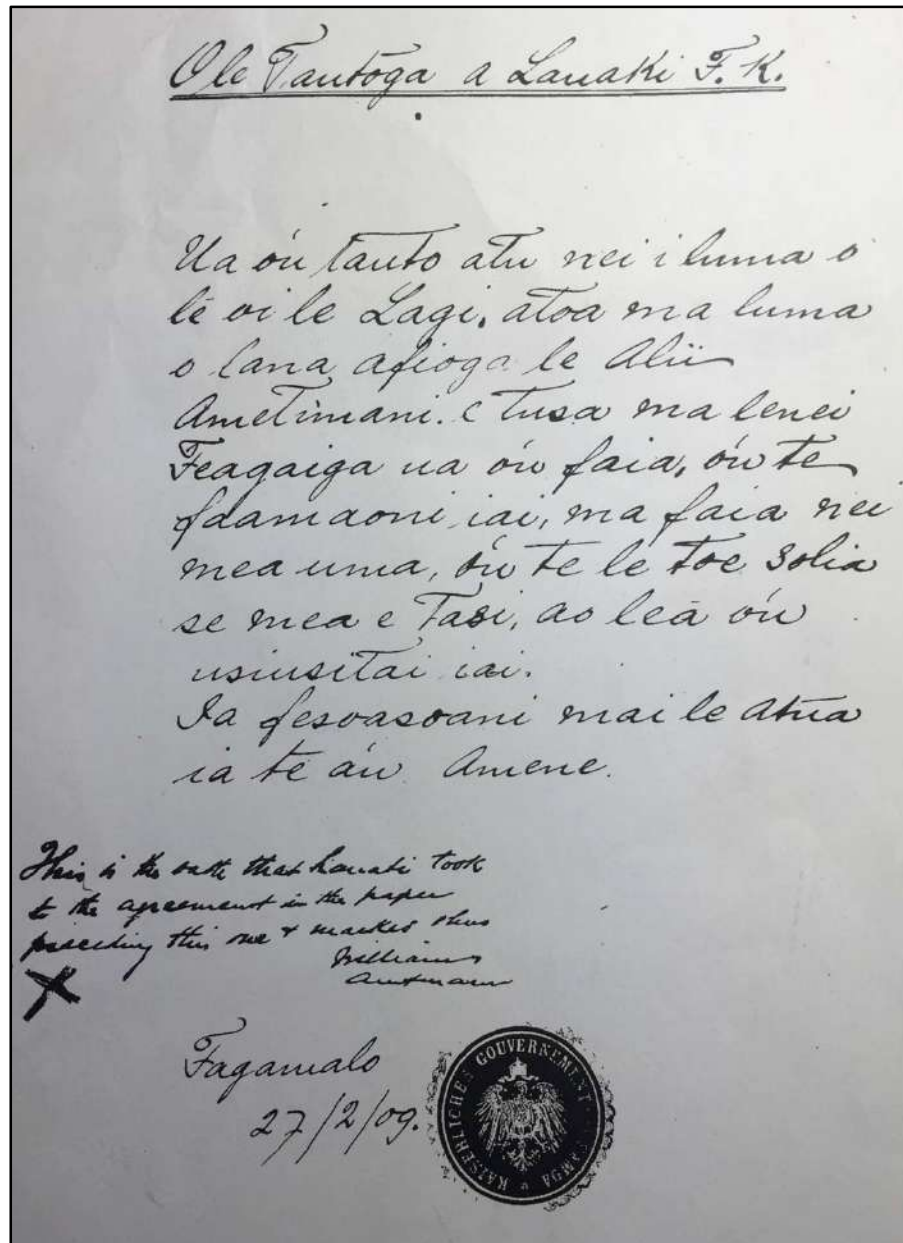 O le Tautōga a Lauaki F. K.
Ua óu tauto atu nei i luma o
lē oi le Lagi, atoa ma luma
o lana afioga le Alii
Ametimani. E tusa ma lenei
Feagaiga ua óu faia, óu te
faamaoni iai, ma faia nei
mea uma, óu te le toe solia
se mea e Tasi, ao leā óu
usiusitai iai.
Ia fesoasoani mai le Atua
ia te áu Amene.
This is the oath that Lauati took
to the agreement in the paper
preceding this one & marked thus
X
Williams
Amtmann
Fagamalo
27/2/09.
KAISERLICHES GOUVERNEMENT SAMOA